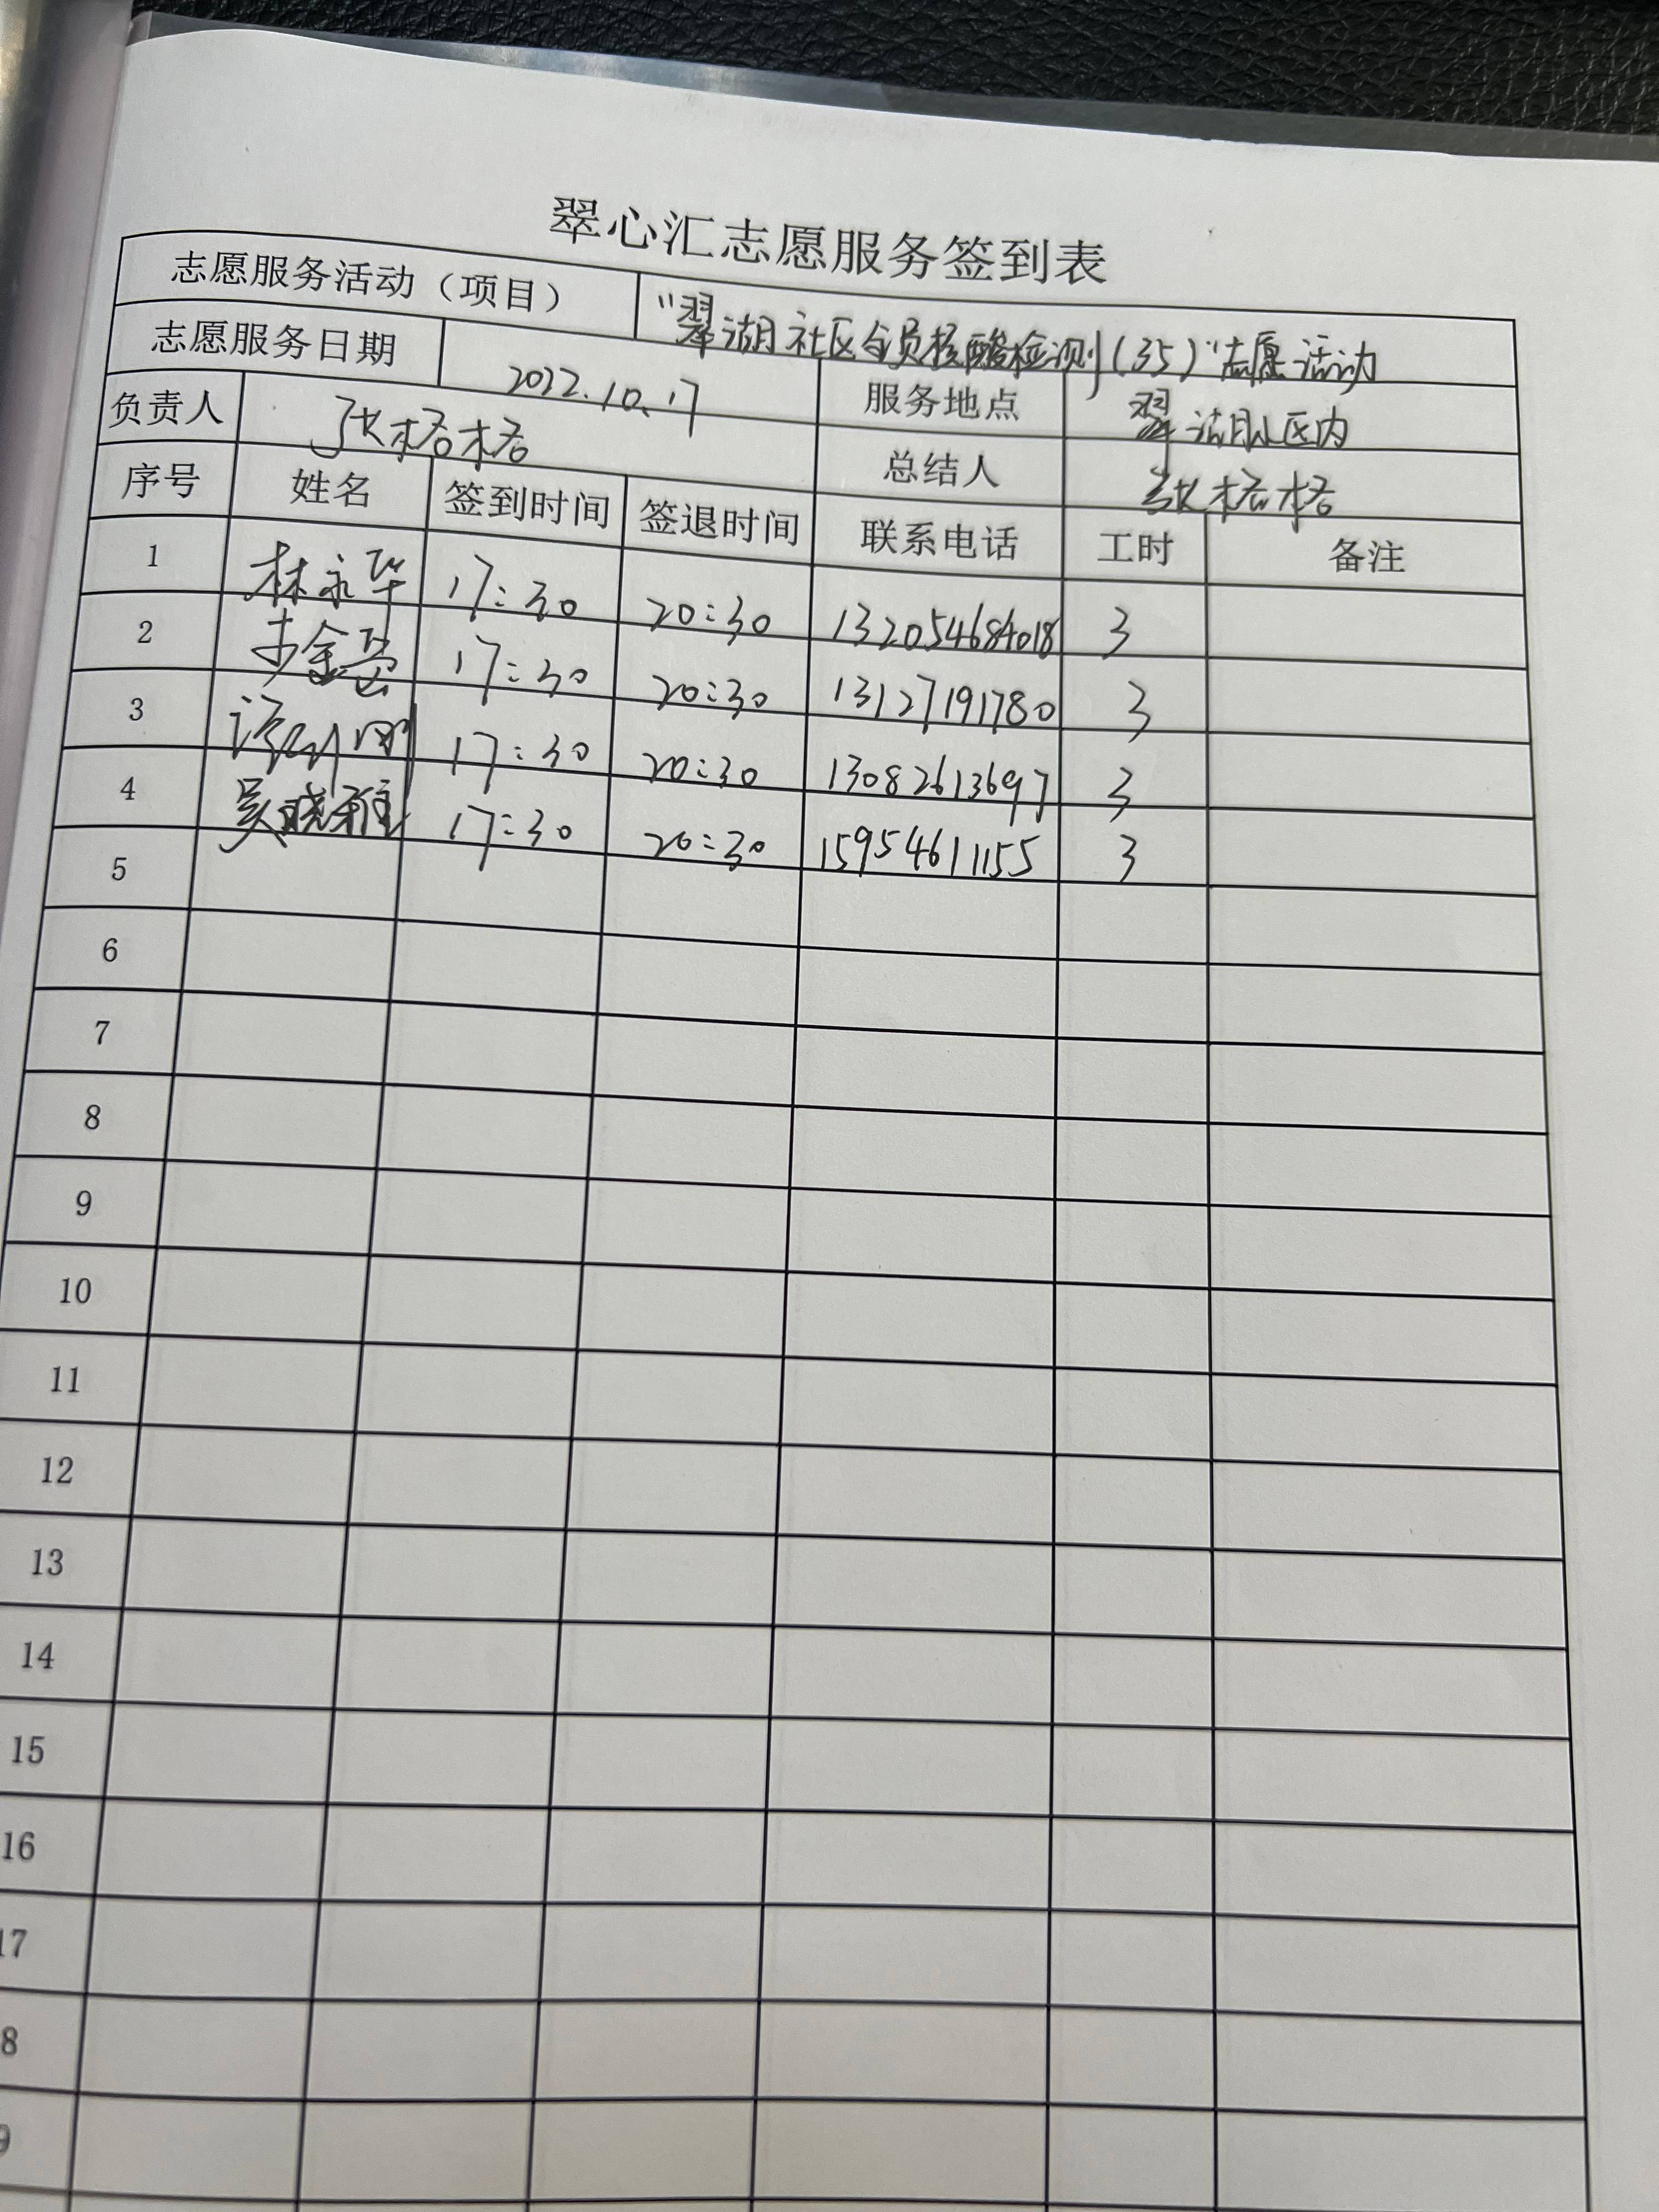 翠心汇志愿服务签到表
志愿服务活动（项目） “翠湖社区全员核酸检测(35)”志愿活动
志愿服务日期 2022.10.17 服务地点 翠湖社区内
负责人 张格格 总结人 张格格
序号 姓名 签到时间 签退时间 联系电话 工时 备注
1 林永华 17:30 20:30 132054684018 3
2 17:30 20:30 13127191780 3
3 17:30 20:30 13082613697 3
4 吴晓雅 17:30 20:30 15954611155 3
5
6
7
8
9
10
11
12
13
14
15
16
17
8
9